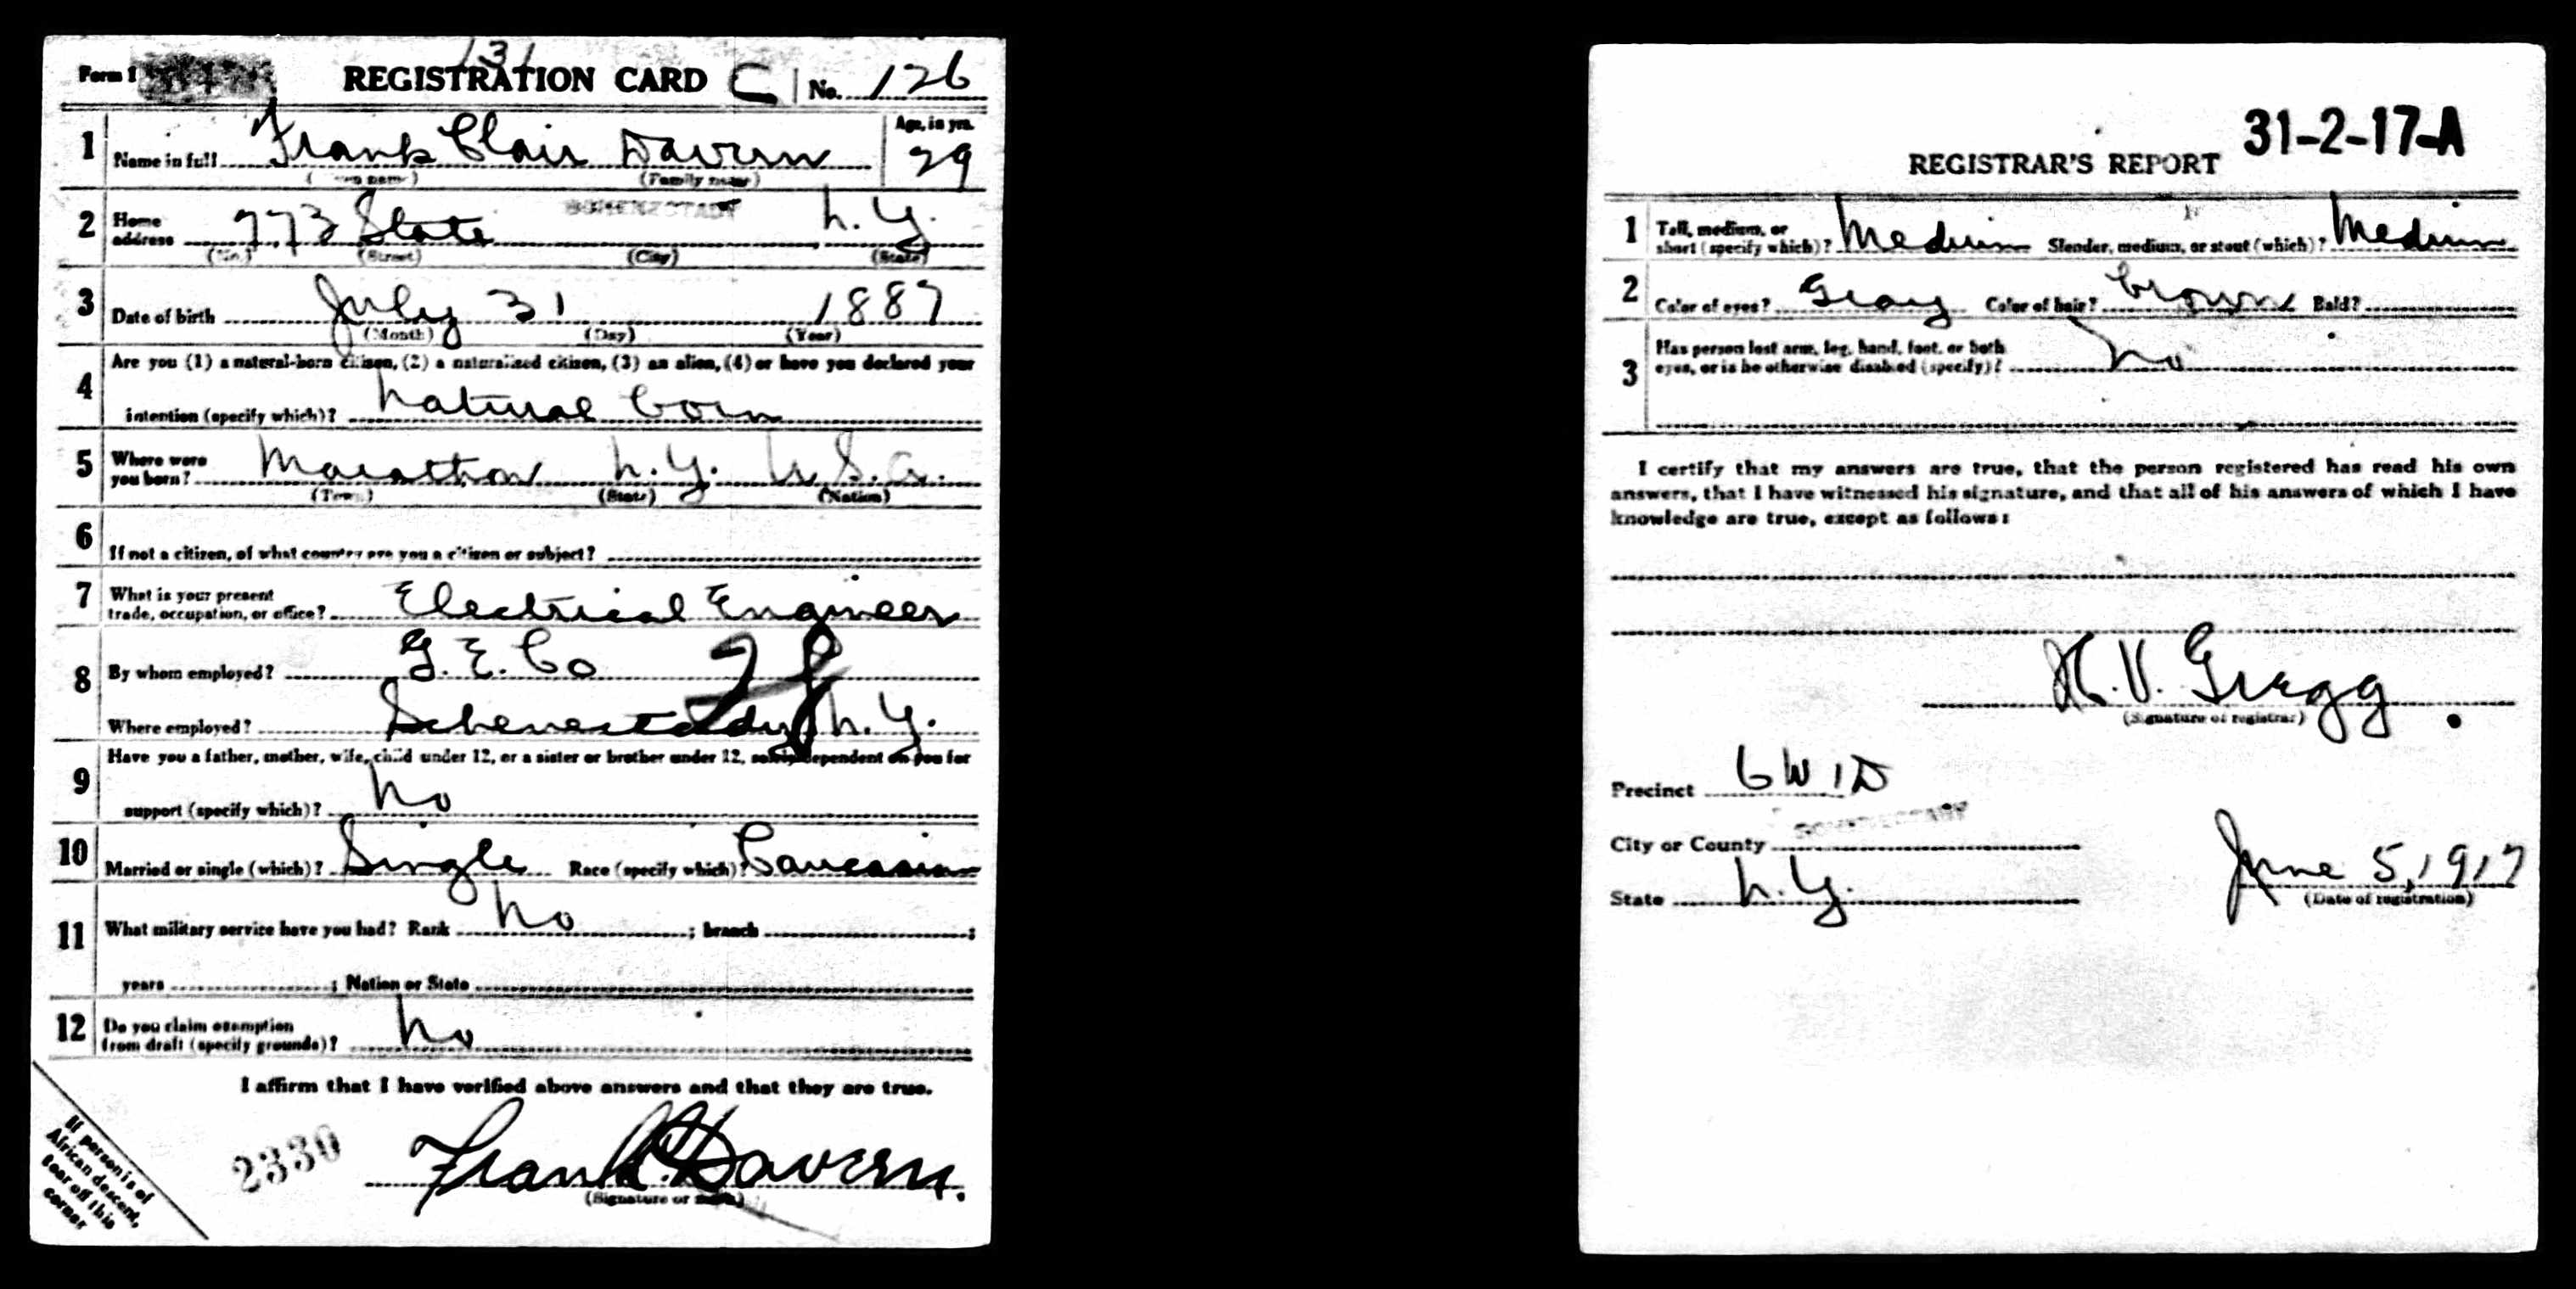 131
Form 1 REGISTRATION CARD C No. 126
1 Name in full Frank Clair Davern Age, in yrs. 29
(Family name)
2 Home address 773 State SCHENECTADY N.Y.
(No.) (Street) (City) (State)
3 Date of birth July 31 1887
(Month) (Day) (Year)
Are you (1) a natural-born citizen, (2) a naturalized citizen, (3) an alien, (4) or have you declared your
4 intention (specify which)? Natural born
5 Where were you born? Marathon N.Y. U.S.A.
(Town) (State) (Nation)
6 If not a citizen, of what country are you a citizen or subject?
7 What is your present trade, occupation, or office? Electrical Engineer
8 By whom employed? G.E. Co
Where employed? Schenectady N.Y.
Have you a father, mother, wife, child under 12, or a sister or brother under 12, solely dependent on you for
9 support (specify which)? No
10 Married or single (which)? Single Race (specify which)? Caucasian
11 What military service have you had? Rank No ; branch ;
years ; Nation or State
12 Do you claim exemption from draft (specify grounds)? No
I affirm that I have verified above answers and that they are true.
2330 Frank C. Davern.
(Signature or mark)
If person is of
African descent,
tear off this
corner
31-2-17-A
REGISTRAR'S REPORT
1 Tall, medium, or short (specify which)? Medium Slender, medium, or stout (which)? Medium
2 Color of eyes? Gray Color of hair? brown Bald?
3 Has person lost arm, leg, hand, foot, or both eyes, or is he otherwise disabled (specify)? No
I certify that my answers are true, that the person registered has read his own
answers, that I have witnessed his signature, and that all of his answers of which I have
knowledge are true, except as follows:
H. V. Gregg
(Signature of registrar)
Precinct 6 W 1 D
City or County SCHENECTADY
State N.Y. June 5, 1917
(Date of registration)